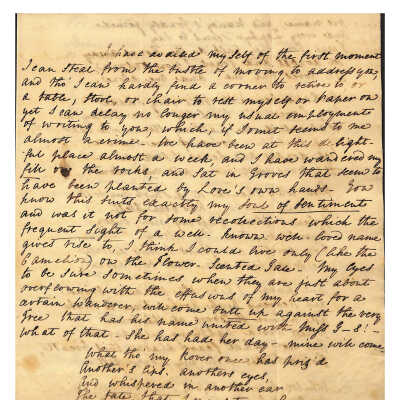 I have availed myself of the first moment
I can steal from the bustle of moving to address you,
and tho' I can hardly find a corner to retire to or
a table, stool, or chair to rest myself or Paper on
yet I can delay no longer my usual employment
of writing to you, which, if I omit seems to me
almost a crime. We have been at this delight-
ful place almost a week, and I have wandered my
fill on the rocks, and sat in Groves that seem to
have been planted by Love's own hands. You
know this suits exactly my Soul of Sentiment
and was it not for some recollections which the
frequent Sight of a well-known well-lov'd name
gives rise to, I think I could live only (like the
Camelion) on the Flower-Scented Gale. My eyes
to be sure sometimes, when they are just about
overflowing with the effusions of my heart for a
certain Wanderer, will come butt up against the very
Tree that has his name united with Miss I-S!-
What of that. She has had her day- mine will come.
What tho' my Rover once has priz'd
Another's lips. anothers eyes,
And whispered in another ear
The fate that